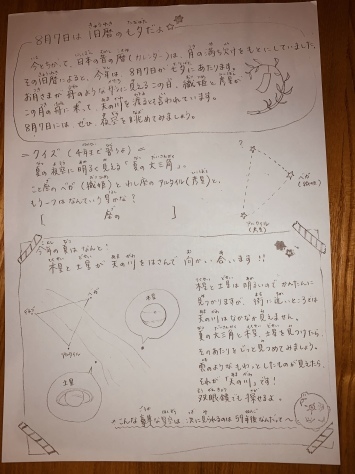 8月7日は 旧暦の七夕だよ☆
今とちがって、日本の昔の暦(カレンダー)は、月の満ち欠けをもとにしていました。
その旧暦によると、今年は、8月7日が七夕にあたります。
お月さまが舟のような形に見えるこの日、織姫と彦星が
この月の舟に乗って、天の川を渡ると言われています。
8月7日には ぜひ、夜空を眺めてみましょう。
= クイズ (4年生で習うよ) =
夏の夜空に明るく見える「夏の大三角」。
こと座のベガ(織姫)と わし座のアルタイル(彦星)と、
もう一つはなんていう星かな？
[ 座の ]
?
ベガ
(織姫)
アルタイル
(彦星)
今年の夏はなんと！
木星と土星が天の川をはさんで向かい合います!!
木星
ベガ
アルタイル
土星
木星と土星は明るいのでかんたんに
見つかりますが、街に近いところでは
天の川はなかなか見えません。
夏の大三角と木星、土星を見つけたら、
そのあたりをじっと見つめてみましょう。
雲のようなもわっとしたものが見えたら、
それが「天の川」です！
双眼鏡でも探せるよ。
こんな豪華な星空は 次に見られるのは59年後なんだって〜